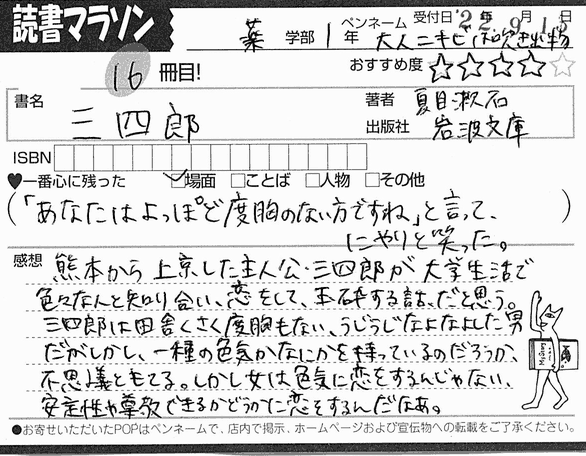 読書マラソン
薬 学部 1 年
ペンネーム 受付日 '22年 9月13日
大人ニキビは吹き出物
16 冊目!
おすすめ度 ☆☆☆☆☆
書名 三四郎
著者 夏目漱石
出版社 岩波文庫
ISBN
♥一番心に残った □場面 □ことば □人物 □その他
(「あなたはよっぽど度胸のない方ですね」と言って、
にやりと笑った。)
感想 熊本から上京した主人公・三四郎が大学生活で
色々なんと知り合い、恋をして、玉砕する話、だと思う。
三四郎は田舎くさく度胸もない、うじうじなよなよした男
だがしかし、一種の色気かなにかを持っているのだろうか、
不思議ともてる。しかし女は色気に恋をするんじゃない、
安定性や尊敬できるかどうかに恋をするんだなあ。
●お寄せいただいたPOPはペンネームで、店内で掲示、ホームページおよび宣伝物への転載をご了承ください。